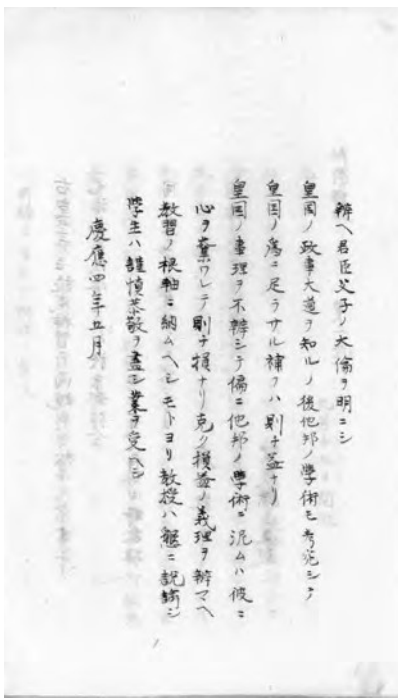 辨ヘ君臣父子ノ大倫ヲ明ニシ
皇国ノ政事大道ヲ知ルノ後他邦ノ學術モ考究シテ
皇国ノ爲ニ足ラサル補フハ則チ益ナリ
皇国ノ事理ヲ不辨シテ偏ニ他邦ノ學術ニ泥ムハ彼ニ
心ヲ棄ワレテ則チ損ナリ克ク損益ノ義理ヲ辨マヘ
教習ノ根軸ニ納ムヘシモトヨリ教授ハ懇ニ説諭シ
學生ハ謹慎恭敬ヲ盡シ業ヲ受ヘシ
慶應四年五月